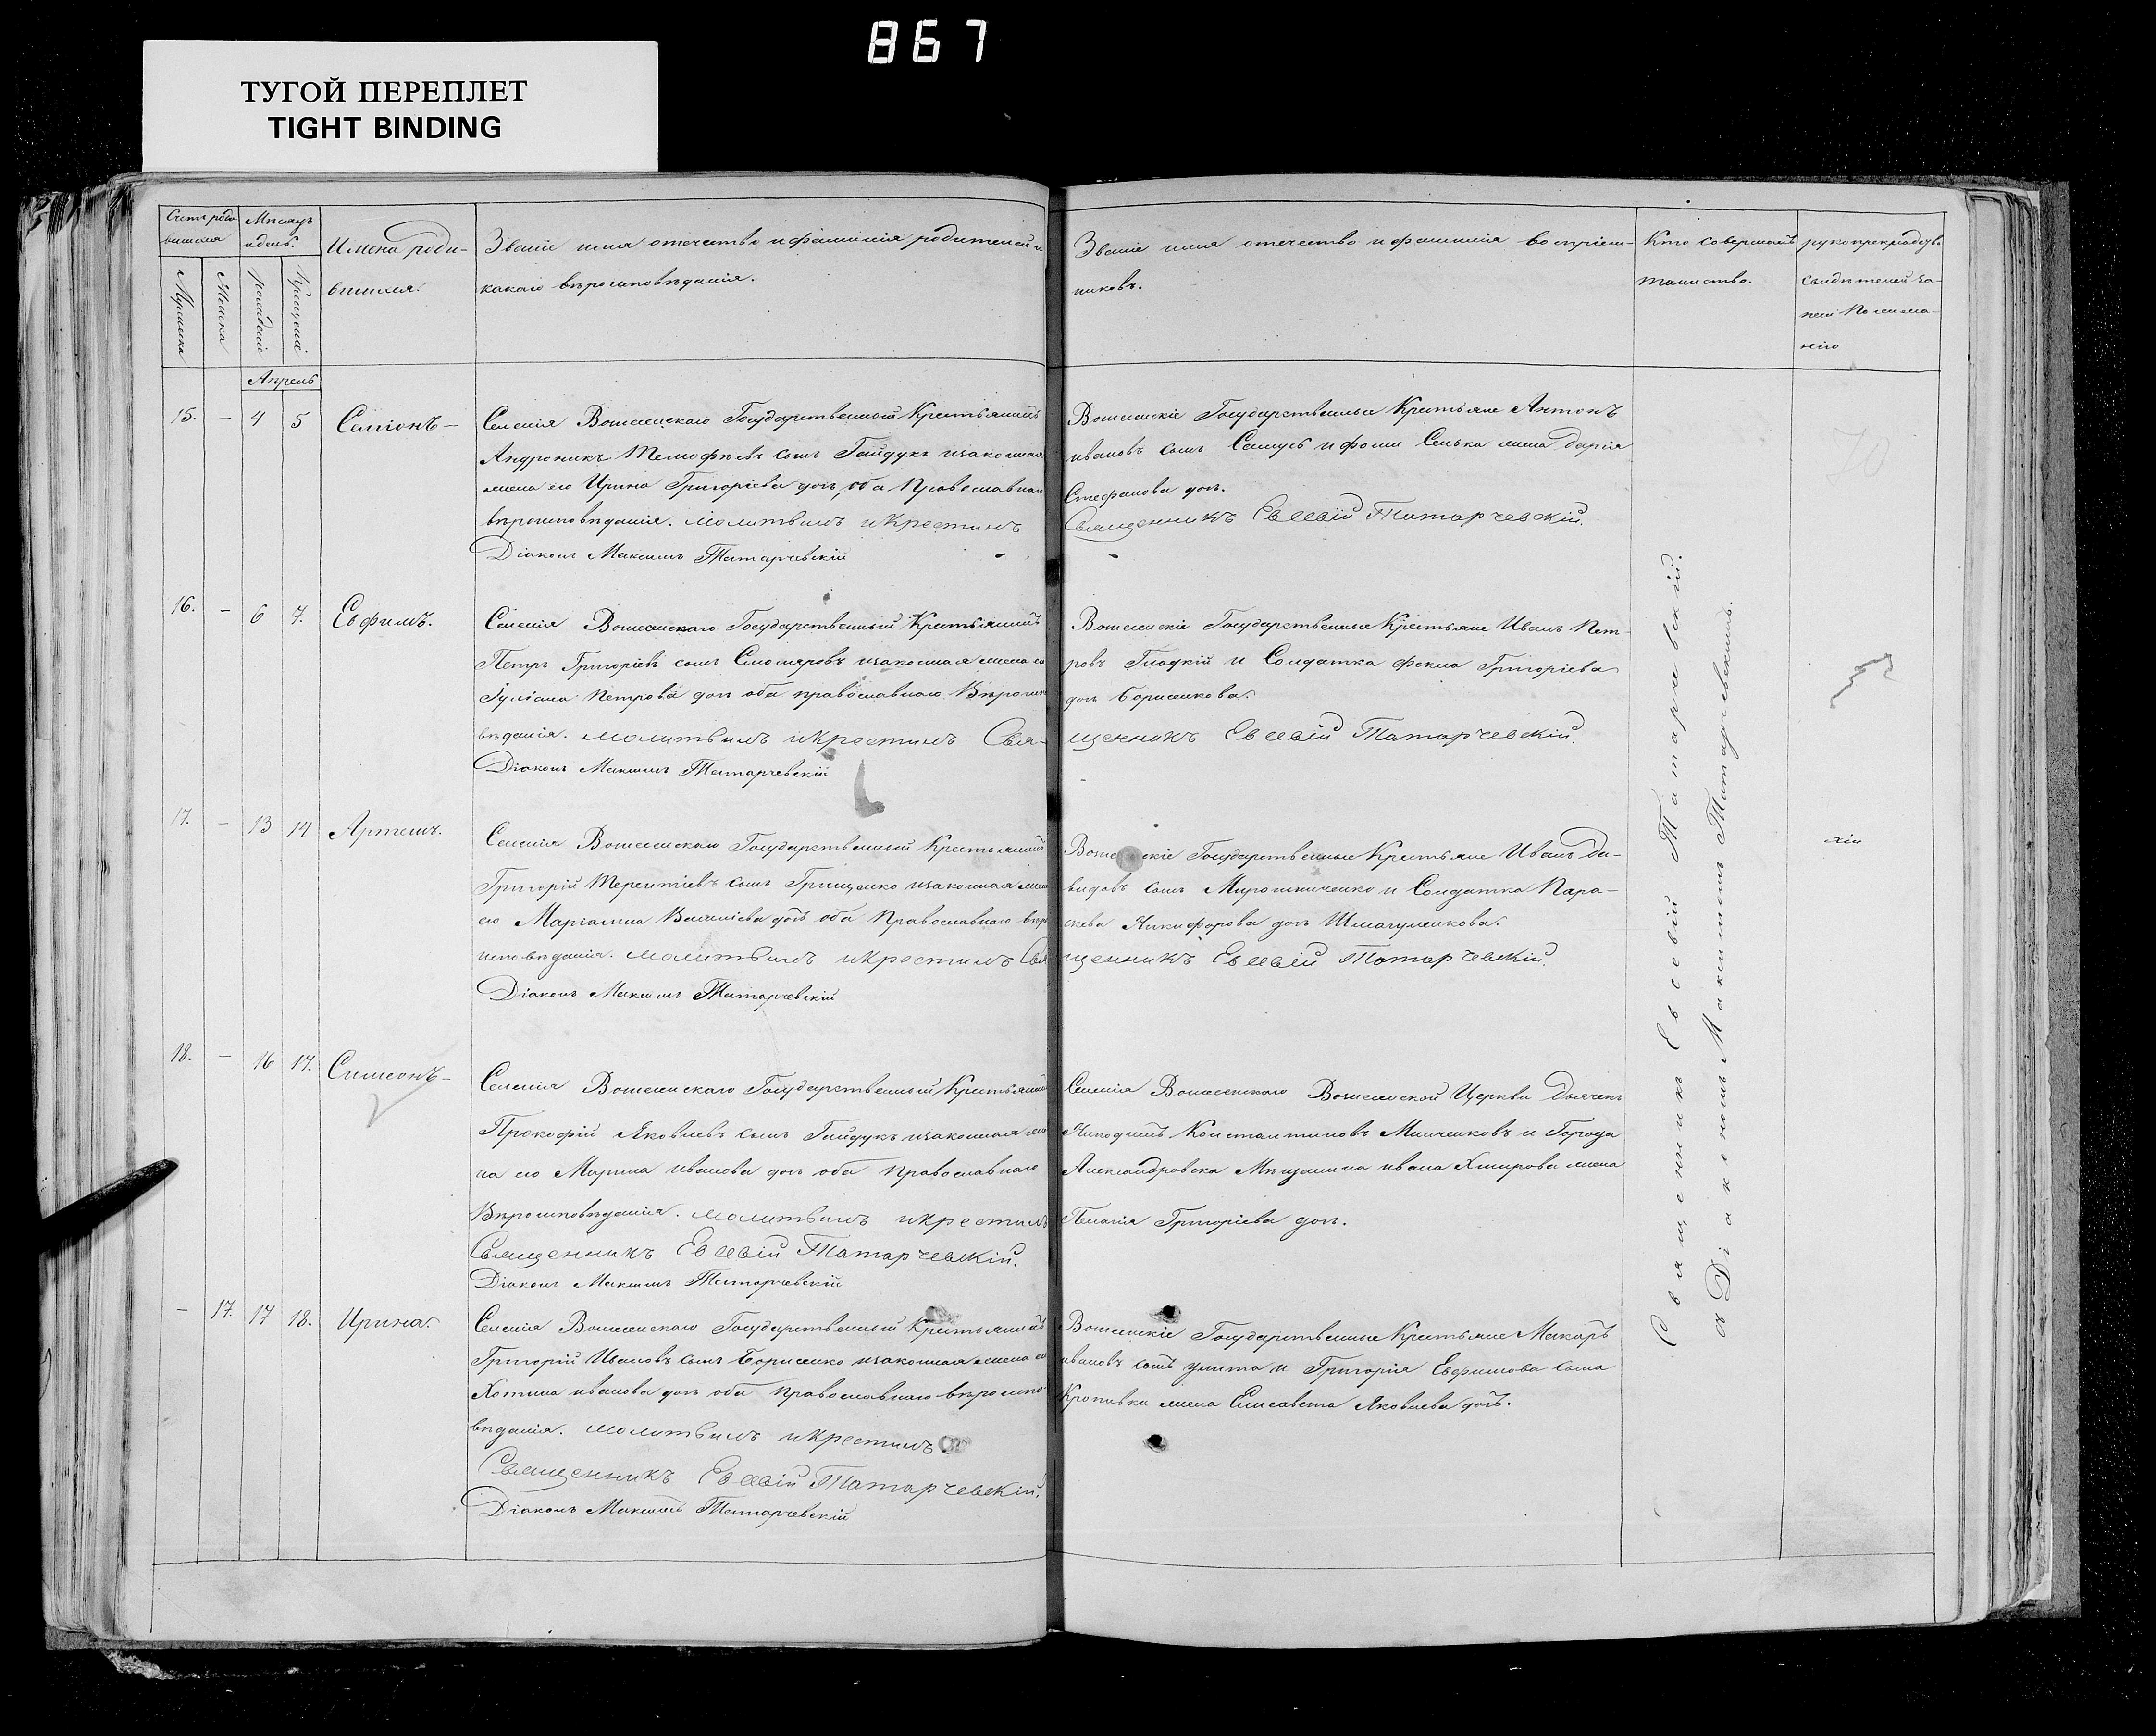 867
ТУГОЙ ПЕРЕПЛЕТ
TIGHT BINDING
Счетъ родившихся
Мѣсяцъ и день.
Мужеска
Женска
Рожденiе
Крещенiе
Имена родившихся.
Званiе имя отечество и фамилiя родителей и
какаго вѣроисповѣданiя.
Званiе имя отечество и фамилiя воспрiем-
никовъ.
Кто совершалъ
таинство.
рукоприкладств.
свидѣтелей за-
писи по жела-
нiю
Апрель
15. – 4 5 Семiонъ –
Селенiя Вознесенскаго Государственный Крестьянинъ
Андроникъ Тимофѣевъ сынъ Гайдукъ изаконная
жена его Ирина Григорiева дочь, оба Православнаго
вѣроисповѣданiя. молитвилъ икрестилъ
Дiаконъ Максимъ Татарчевскiй
Вознесенскiе Государственные Крестьяне Антонъ
ивановъ сынъ и фомы жена Дарiя
Стефанова доч.
Священникъ Евсевiй Татарчевскiй.
16. – 6 7. Евфимъ.
Селенiя Вознесенскаго Государственный Крестьянинъ
Петръ Григорiевъ сынъ изаконная жена его
Iулiана Петрова доч оба православнаго Вѣроиспо
вѣданiя. молитвилъ икрестилъ Свя-
Дiаконъ Максимъ Татарчевскiй
Вознесенскiе Государственные Крестьяне Иванъ Пет-
ровъ Гладкiй и Солдатка Фекла Григорiева
дочь Борисенкова.
щенникъ Евсевiй Татарчевскiй.
17. – 13 14 Артемъ.
Селенiя Вознесенскаго Государственный Крестьянинъ
Григорiй Терентiевъ сынъ Грищенко изаконная жена
его Марiамна Василiева дочь оба Православнаго вѣро
исповѣданiя. молитвилъ икрестилъ Свя
Дiаконъ Максимъ Татарчевскiй
Вознесенскiе Государственные Крестьяне Иванъ Да-
видовъ сынъ Мирошниченко и Солдатка Пара-
скева Никифорова дочь
щенникъ Евсевiй Татарчевскiй.
18. – 16 17. Симеонъ –
Селенiя Вознесенскаго Государственный Крестьянинъ
Прокофiй Яковлевъ сынъ Гайдукъ изаконная же
на его Марина иванова доч оба Православнаго
Вѣроисповѣданiя. молитвилъ икрестилъ
Священникъ Евсевiй Татарчевскiй.
Дiаконъ Максимъ Татарчевскiй
Селенiя Вознесенскаго Вознесенской Церкви Дьячекъ
Никодимъ Константиновъ и Города
Александровска Мѣщанина ивана жена
Пелагiя Григорiева доч.
– 17. 17 18. Ирина.
Селенiя Вознесенскаго Государственный Крестьянинъ
Григорiй Ивановъ сынъ Борисенко изаконная жена его
Хотина иванова доч оба Православнаго вѣроиспо
вѣданiя. молитвилъ икрестилъ
Священникъ Евсевiй Татарчевскiй.
Дiаконъ Максимъ Татарчевскiй
Вознесенскiе Государственные Крестьяне Макаръ
ивановъ сынъ улита и Григорiя Евфимова сына
Кропивки жена Елисавета Яковлева дочь.
Священникъ Евсевiй Татарчевскiй.
съ Дiакономъ Максимомъ Татарчевскимъ.